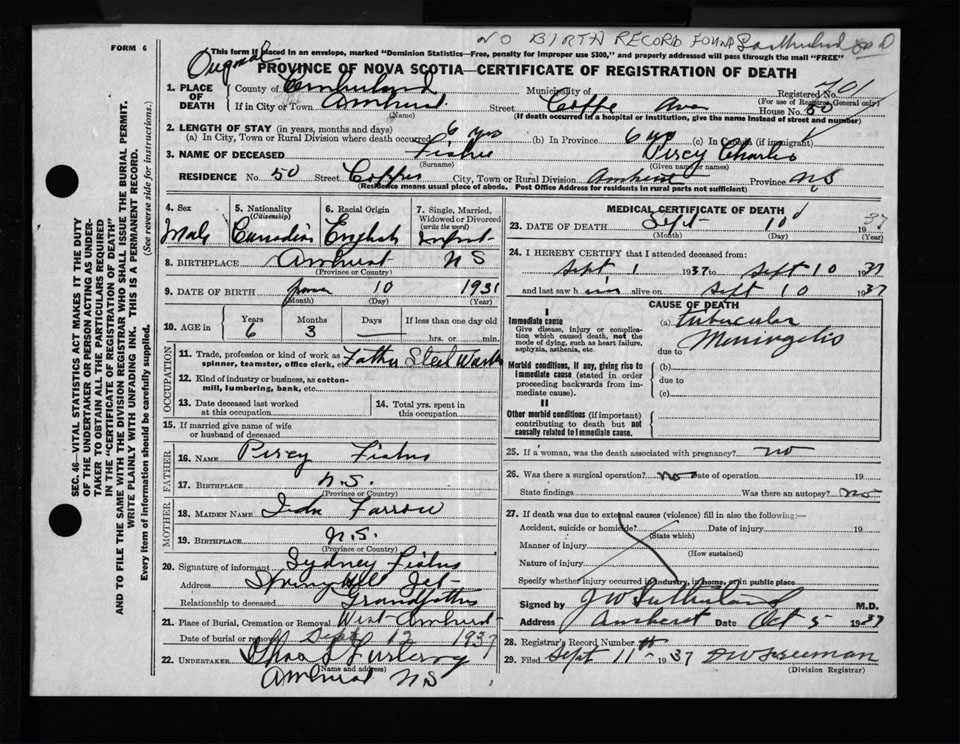 NO BIRTH RECORD FOUND
FORM 6
This form if placed in an envelope, marked "Dominion Statistics—Free, penalty for improper use $300," and properly addressed will pass through the mail "FREE"
Original
PROVINCE OF NOVA SCOTIA—CERTIFICATE OF REGISTRATION OF DEATH
1. PLACE OF DEATH County of Cumberland Municipality of Registered No. 701
(For use of Registrar General only)
If in City or Town Amherst Street Copp Ave House No. 50
(Name) (If death occurred in a hospital or institution, give the name instead of street and number)
2. LENGTH OF STAY (in years, months and days)
(a) In City, Town or Rural Division where death occurred 6 yrs (b) In Province 6 yrs (c) In Canada (if immigrant)
3. NAME OF DECEASED Percy Charles
(Surname) (Given name or names)
RESIDENCE No. 50 Street City, Town or Rural Division Amherst Province N.S.
(Residence means usual place of abode. Post Office Address for residents in rural parts not sufficient)
4. Sex Male
5. Nationality (Citizenship) Canadian
6. Racial Origin English
7. Single, Married, Widowed or Divorced (write the word) Infant
8. BIRTHPLACE Amherst N S
(Province or Country)
9. DATE OF BIRTH June 10 1931
(Month) (Day) (Year)
10. AGE in Years 6 Months 3 Days — If less than one day old
hrs. or min.
OCCUPATION
11. Trade, profession or kind of work as spinner, teamster, office clerk, etc. Father Steel Worker
12. Kind of industry or business, as cotton-mill, lumbering, bank, etc.
13. Date deceased last worked at this occupation
14. Total yrs. spent in this occupation
15. If married give name of wife or husband of deceased
FATHER
16. NAME Percy
17. BIRTHPLACE N.S.
(Province or Country)
MOTHER
18. MAIDEN NAME Ida Farrow
19. BIRTHPLACE N.S.
(Province or Country)
20. Signature of informant Sydney
Address Springhill Jct
Relationship to deceased Grandfather
21. Place of Burial, Cremation or Removal West Amherst
Date of burial or removal Sept 12 1937
22. UNDERTAKER
(Name and address)
Amherst N S
MEDICAL CERTIFICATE OF DEATH
23. DATE OF DEATH Sept 10 1937
(Month) (Day) (Year)
24. I HEREBY CERTIFY that I attended deceased from:
Sept 1 1937 to Sept 10 1937
and last saw h im alive on Sept 10 1937
CAUSE OF DEATH
I
Immediate cause
Give disease, injury or complication which caused death, not the mode of dying, such as heart failure, asphyxia, asthenia, etc.
(a) Tubercular Meningitis
due to
Morbid conditions, if any, giving rise to immediate cause (stated in order proceeding backwards from immediate cause).
(b)
due to
(c)
II
Other morbid conditions (if important) contributing to death but not causally related to immediate cause.
25. If a woman, was the death associated with pregnancy? no
26. Was there a surgical operation? no Date of operation 19
State findings Was there an autopsy? no
27. If death was due to external causes (violence) fill in also the following:—
Accident, suicide or homicide? Date of injury 19
(State which)
Manner of injury
(How sustained)
Nature of injury
Specify whether injury occurred in industry, in home, or in public place
Signed by J W Sutherland M.D.
Address Amherst Date Oct 5 1937
28. Registrar's Record Number
29. Filed Sept 11 1937 Freeman
(Division Registrar)
SEC. 46—VITAL STATISTICS ACT MAKES IT THE DUTY
OF THE UNDERTAKER OR PERSON ACTING AS UNDERTAKER TO OBTAIN ALL THE PARTICULARS REQUIRED
IN THE "CERTIFICATE OF REGISTRATION OF DEATH"
AND TO FILE THE SAME WITH THE DIVISION REGISTRAR WHO SHALL ISSUE THE BURIAL PERMIT.
WRITE PLAINLY WITH UNFADING INK. THIS IS A PERMANENT RECORD.
Every item of information should be carefully supplied. (See reverse side for instructions.)